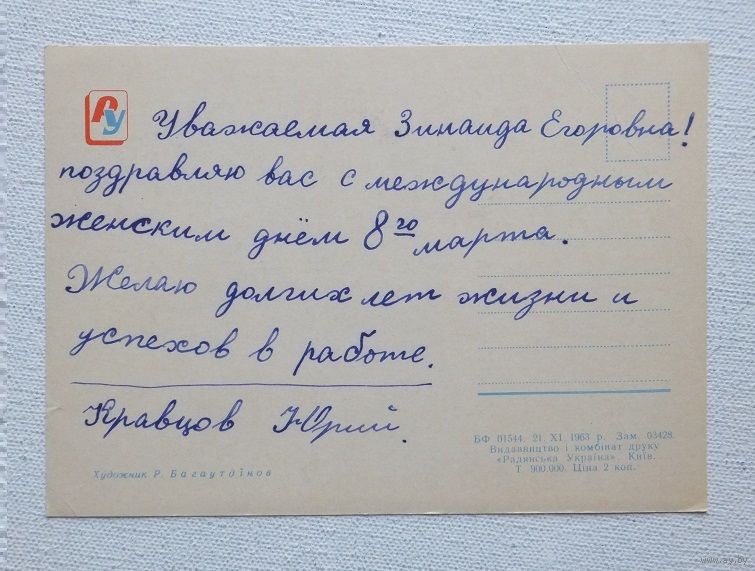 РУ
Уважаемая Зинаида Егоровна!
поздравляю вас с международным
женским днём 8го марта.
Желаю долгих лет жизни и
успехов в работе.
Кравцов Юрий.
Художник Р. Багаутдінов
БФ 01544. 21. XI. 1963 р. Зам. 03428.
Видавництво і комбінат друку
«Радянська Україна». Київ.
Т. 900.000. Ціна 2 коп.
www.ay.by